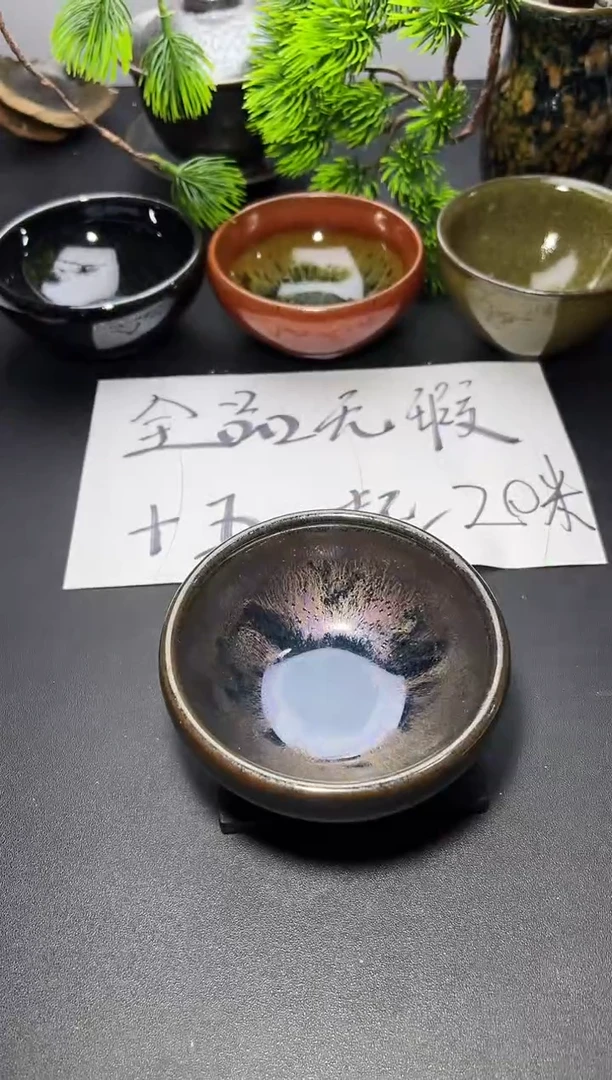 全品无瑕
十五一起20米